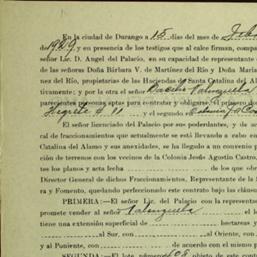 En la ciudad de Durango a 15 días del mes de
de 1929, y en presencia de los testigos que al calce firman, compa
señor Lic. D. Angel del Palacio, en su capacidad de representante
de las señoras Doña Bárbara V. de Martínez del Río y Doña María
nez del Río, propietarias de las Haciendas de Santa Catalina del A
tivamente; y por la otra el señor Basilio Valenzuela
parecientes personas aptas para contratar y obligarse, el primero do
Negrete y el segundo en
El señor licenciado del Palacio por sus poderdantes, y de ac
cal de fraccionamientos que actualmente se está llevando a cabo en
Catalina del Alamo y sus anexidades, se ha llegado a un convenio p
ción de terrenos con los vecinos de la Colonia Jesús Agustín Castro,
tes los planos y acta fecha de los que obr
Director General de dichos Fraccionamientos, Representante de la
ra y Fomento, quedando perfeccionado este contrato bajo las cláusu
PRIMERA:—El señor Lic. del Palacio con la representaci
promete vender al señor Valenzuela
tiene una extensión superficial de hectaras y
al Sur, con al Oriente, con
y al Poniente, con de acuerdo con el mismo p
SEGUNDA:—El lote número 108 objeto de este contr